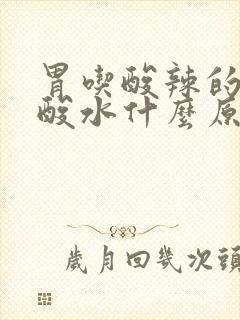 胃喫酸辣的
酸水什麼原
歲月回幾次頭